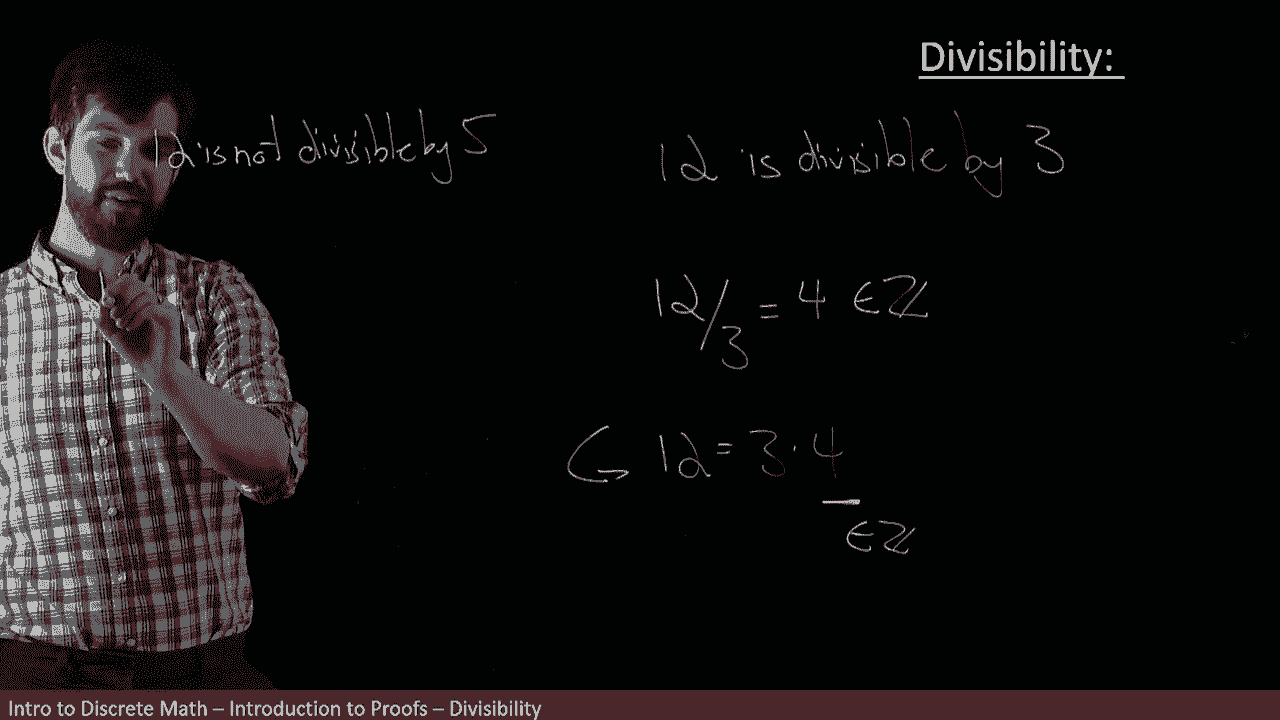 Divisibility:
12 is not divisible by 5
12 is divisible by 3
12/3 = 4 ∈ ℤ
12 = 3·4
∈ ℤ
Intro to Discrete Math – Introduction to Proofs – Divisibility